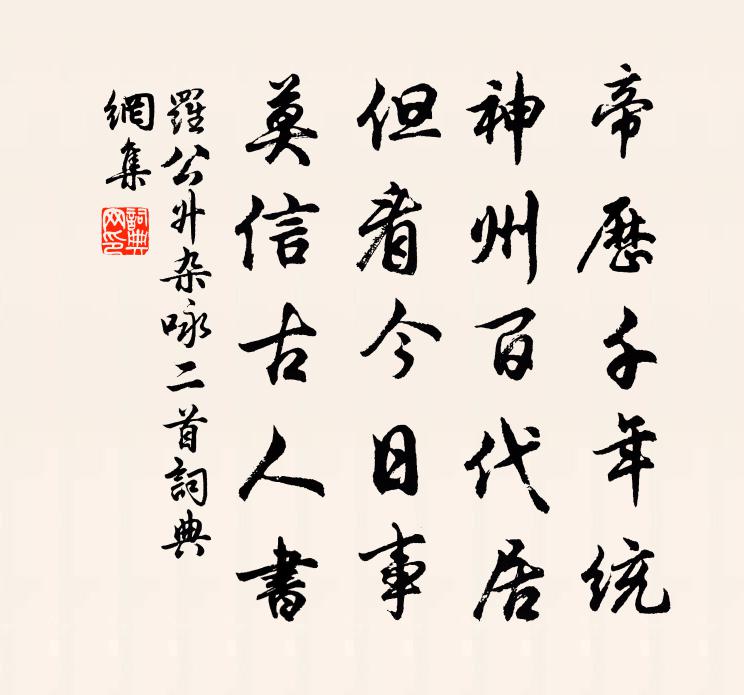 帝歷千年統
神州百代居
但看今日事
莫信古人書
羅公升杂咏二首詞典
網集
詞典网印